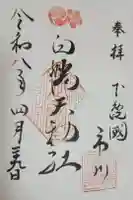 奉拝
下総國
市川
白幡天神社
令和八年四月